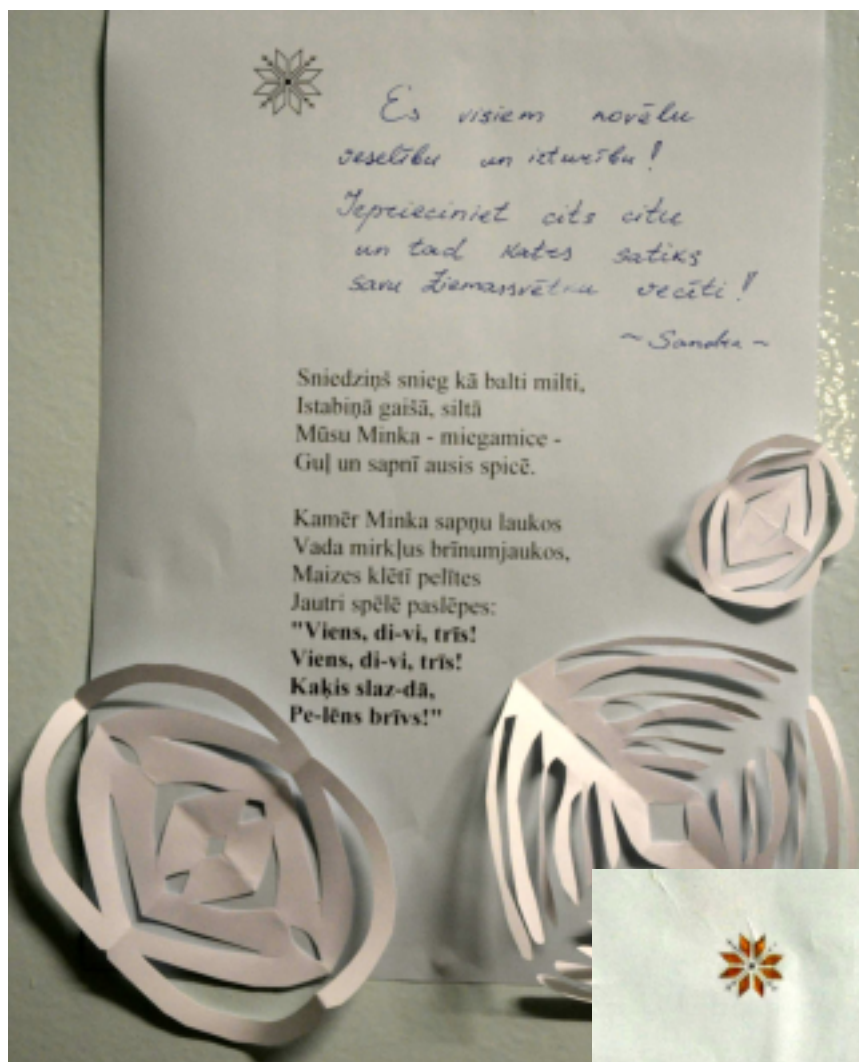 Es visiem novēlu
veselību un izturību!
Ieprieciniet cits citu
un tad katrs satiks
savu Ziemassvētku vecīti!
~ Sandra ~
Sniedziņš snieg kā balti milti,
Istabiņā gaišā, siltā
Mūsu Minka - miegamice -
Guļ un sapnī ausis spicē.
Kamēr Minka sapņu laukos
Vada mirkļus brīnumjaukos,
Maizes klētī pelītes
Jautri spēlē paslēpes:
"Viens, di-vi, trīs!
Viens, di-vi, trīs!
Kaķis slaz-dā,
Pe-lēns brīvs!"